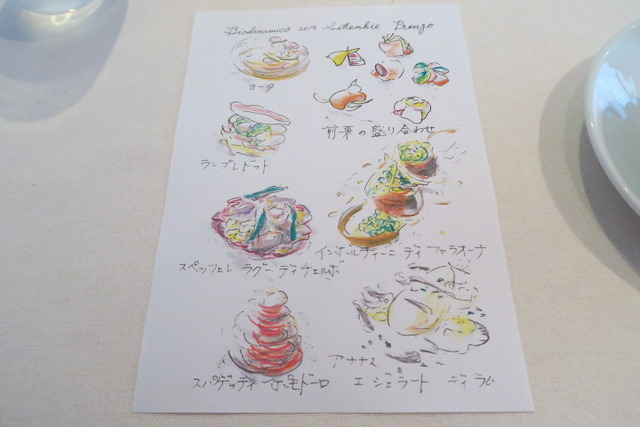 Biodinamico 2015 Settembre Pranzo
ヨータ
前菜の盛り合わせ
ランプレドット
インボルティーニ ディ ファラオーナ
スペッツェレ ラグー ディ チェルボ
アナナス
スパゲッティ ポモドーロ
エ ジェラート ディ ラム